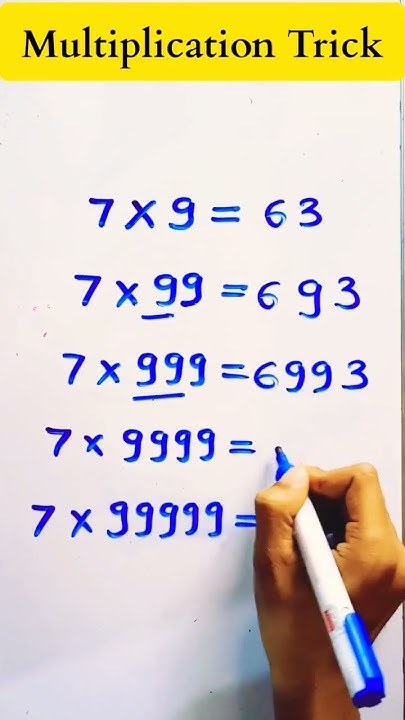 Multiplication Trick
7 × 9 = 63
7 × 99 = 693
7 × 999 = 6993
7 × 9999 =
7 × 99999 =